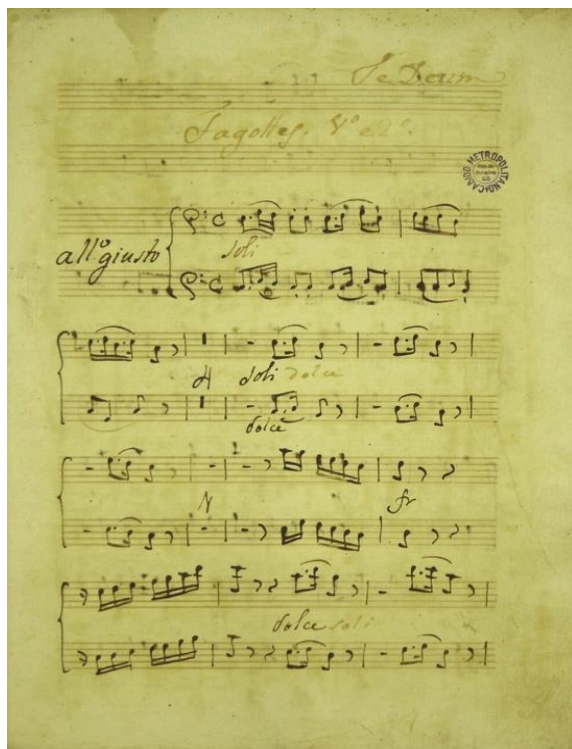 Te Deum
Fagottes. 1º e 2º.
CABIDO METROPOLITANO
all.º giusto
soli
soli dolce
dolce
fr
dolce soli